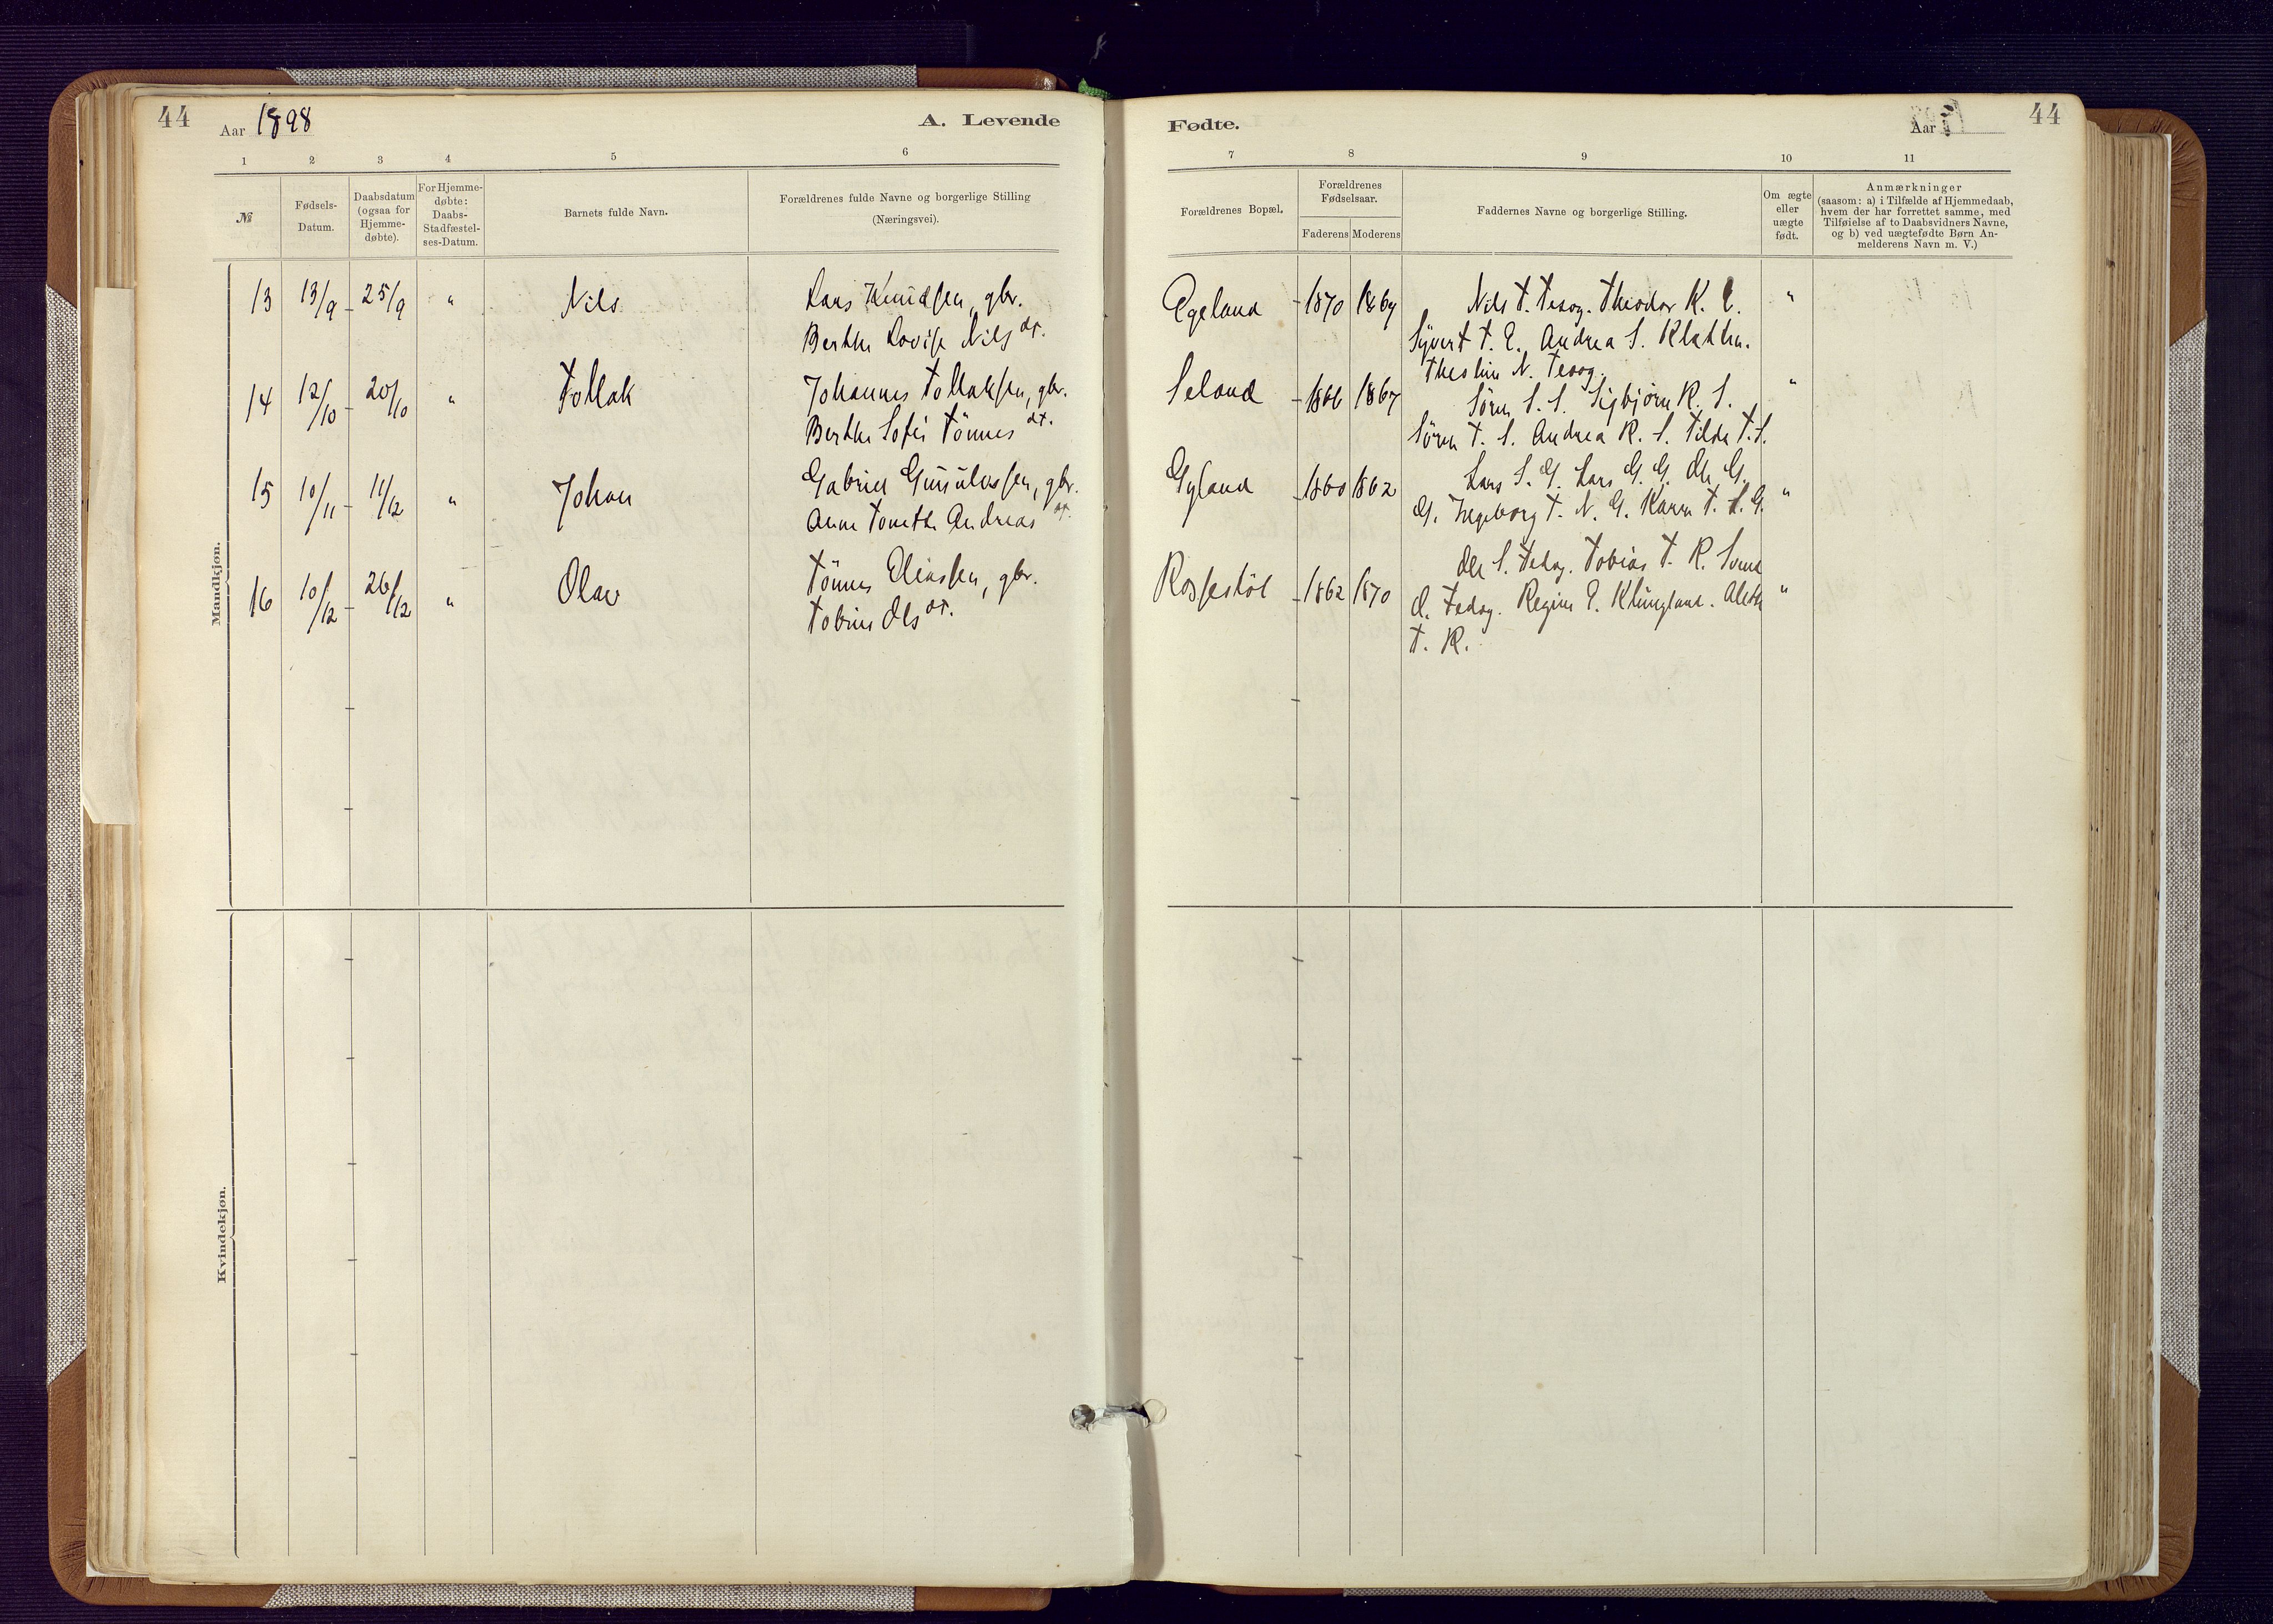 44
Aar 1898
A. Levende
1 2 3 4 5 6
№
Fødsels-
Datum.
Daabsdatum
(ogsaa for
Hjemme-
døbte).
For Hjemme-
døbte:
Daabs-
Stadfæstel-
ses-Datum.
Barnets fulde Navn.
Forældrenes fulde Navne og borgerlige Stilling
(Næringsvei).
Mandkjøn.
13 13/9 25/9 " Nils Lars Knudsen, gbr.
Berthe Lovise Nilsdt.
14 12/10 20/10 " Tollak Johannes Tollaksen, gbr.
Berthe Sofie Tönnesdt.
15 10/11 11/12 " Johan Gabriel Gunulvsen, gbr.
Anne Tomethe Andreasdt.
16 10/12 26/12 " Olav Tönnes Eliassen, gbr.
Tobine Olsdt.
Kvindekjøn.
Fødte.
Aar
44
7 8 9 10 11
Forældrenes Bopæl.
Forældrenes
Fødselsaar.
Faderens Moderens
Faddernes Navne og borgerlige Stilling.
Om ægte
eller
uægte
født.
Anmærkninger
(saasom: a) i Tilfælde af Hjemmedaab,
hvem der har forrettet samme, med
Tilføielse af to Daabsvidners Navne,
og b) ved uægtefødte Børn An-
melderens Navn m. V.)
Egeland 1870 1869 Nils T. Tesog. Theodor K. E. "
Syvert T. E. Andrea S. Kladthu.
N. Tesog.
Seland 1866 1867 Sören S. S. Sigbjörn R. S. "
Sören T. S. Andrea R. S. Tilda T. S.
Gyland 1860 1862 Lars S. G. Lars G. G. Ole G.
G. Ingeborg T. N. G. Karen T. S. G. "
Ole S. Fedog. Tobias T. R. Svend
Rossestöl 1862 1870 O. Fedog. Regine E. Klungland. Alethe "
T. R.